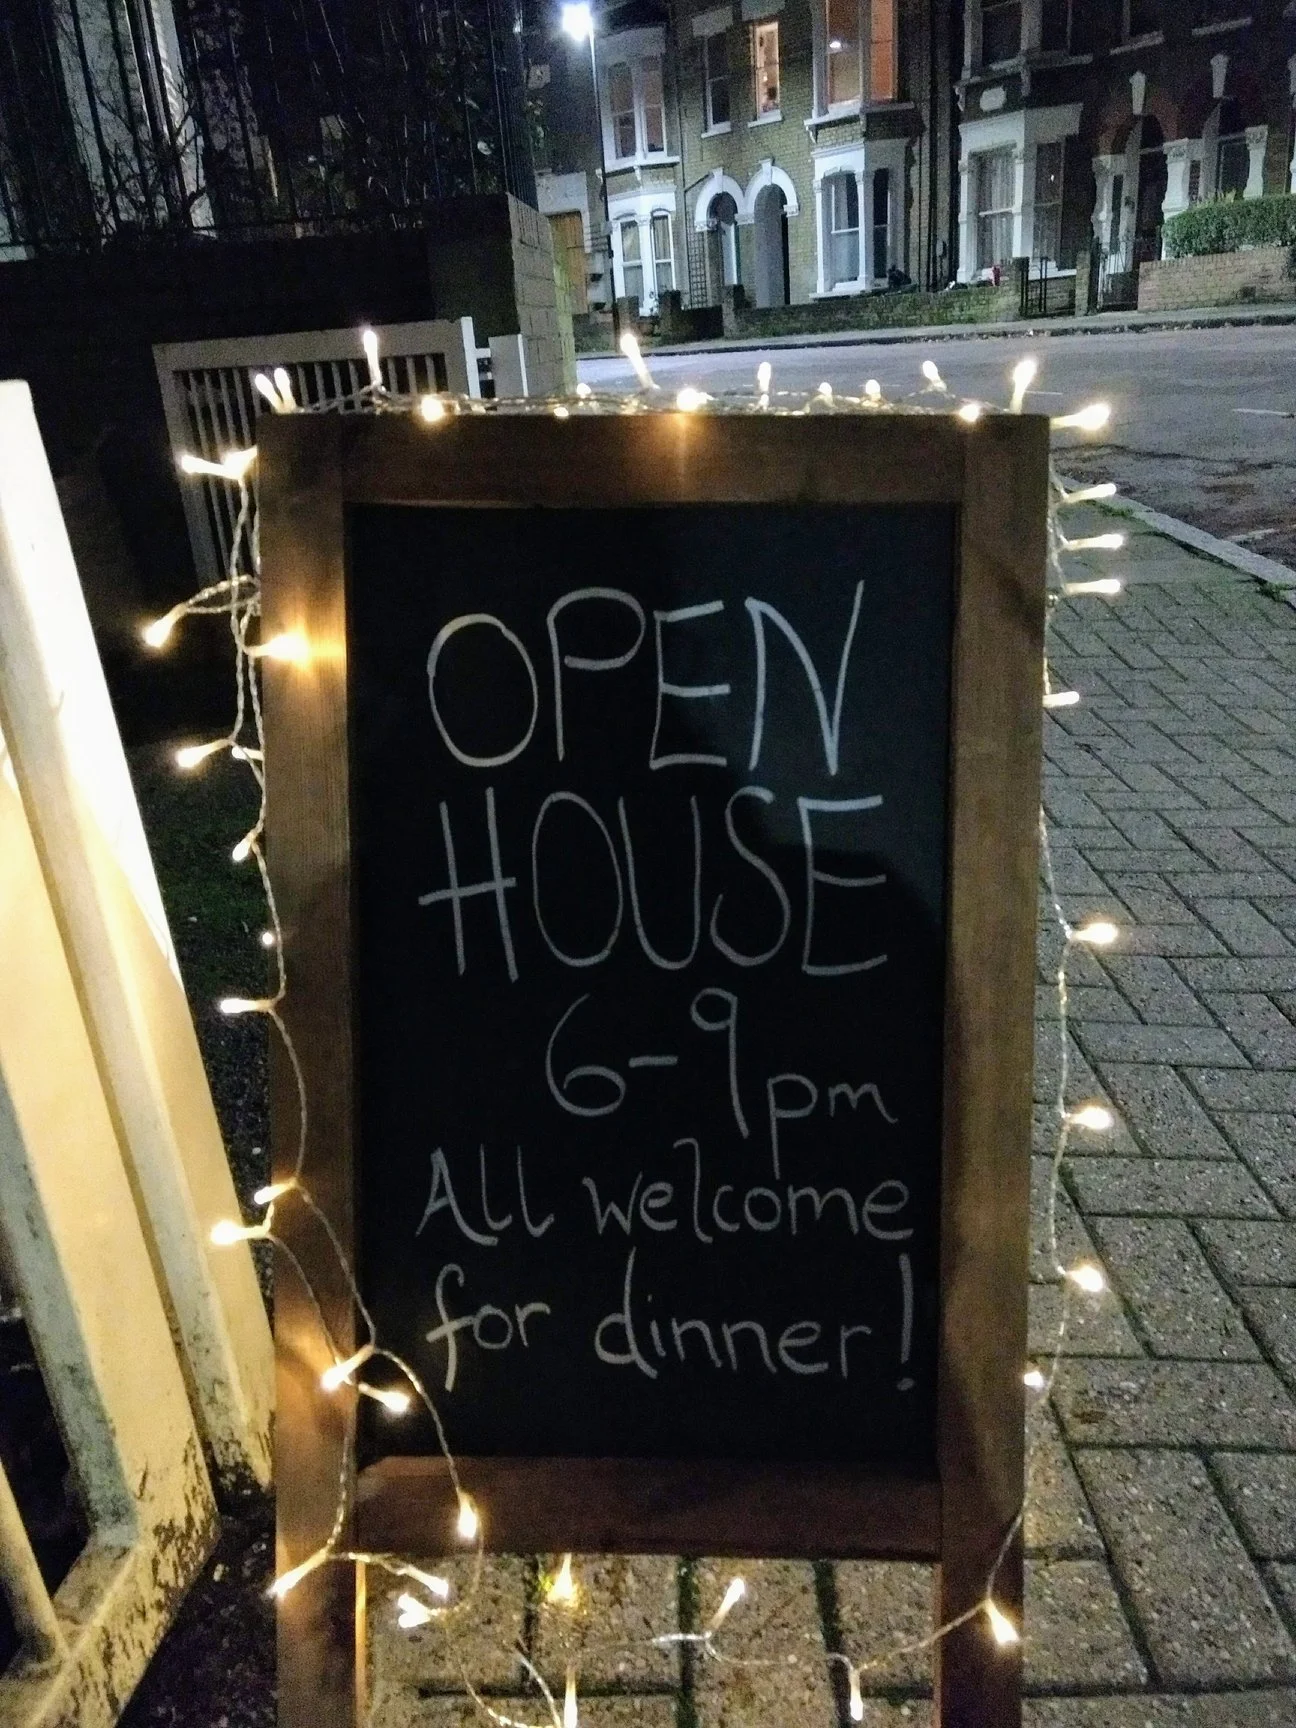 OPEN
HOUSE
6-9pm
All welcome
for dinner!